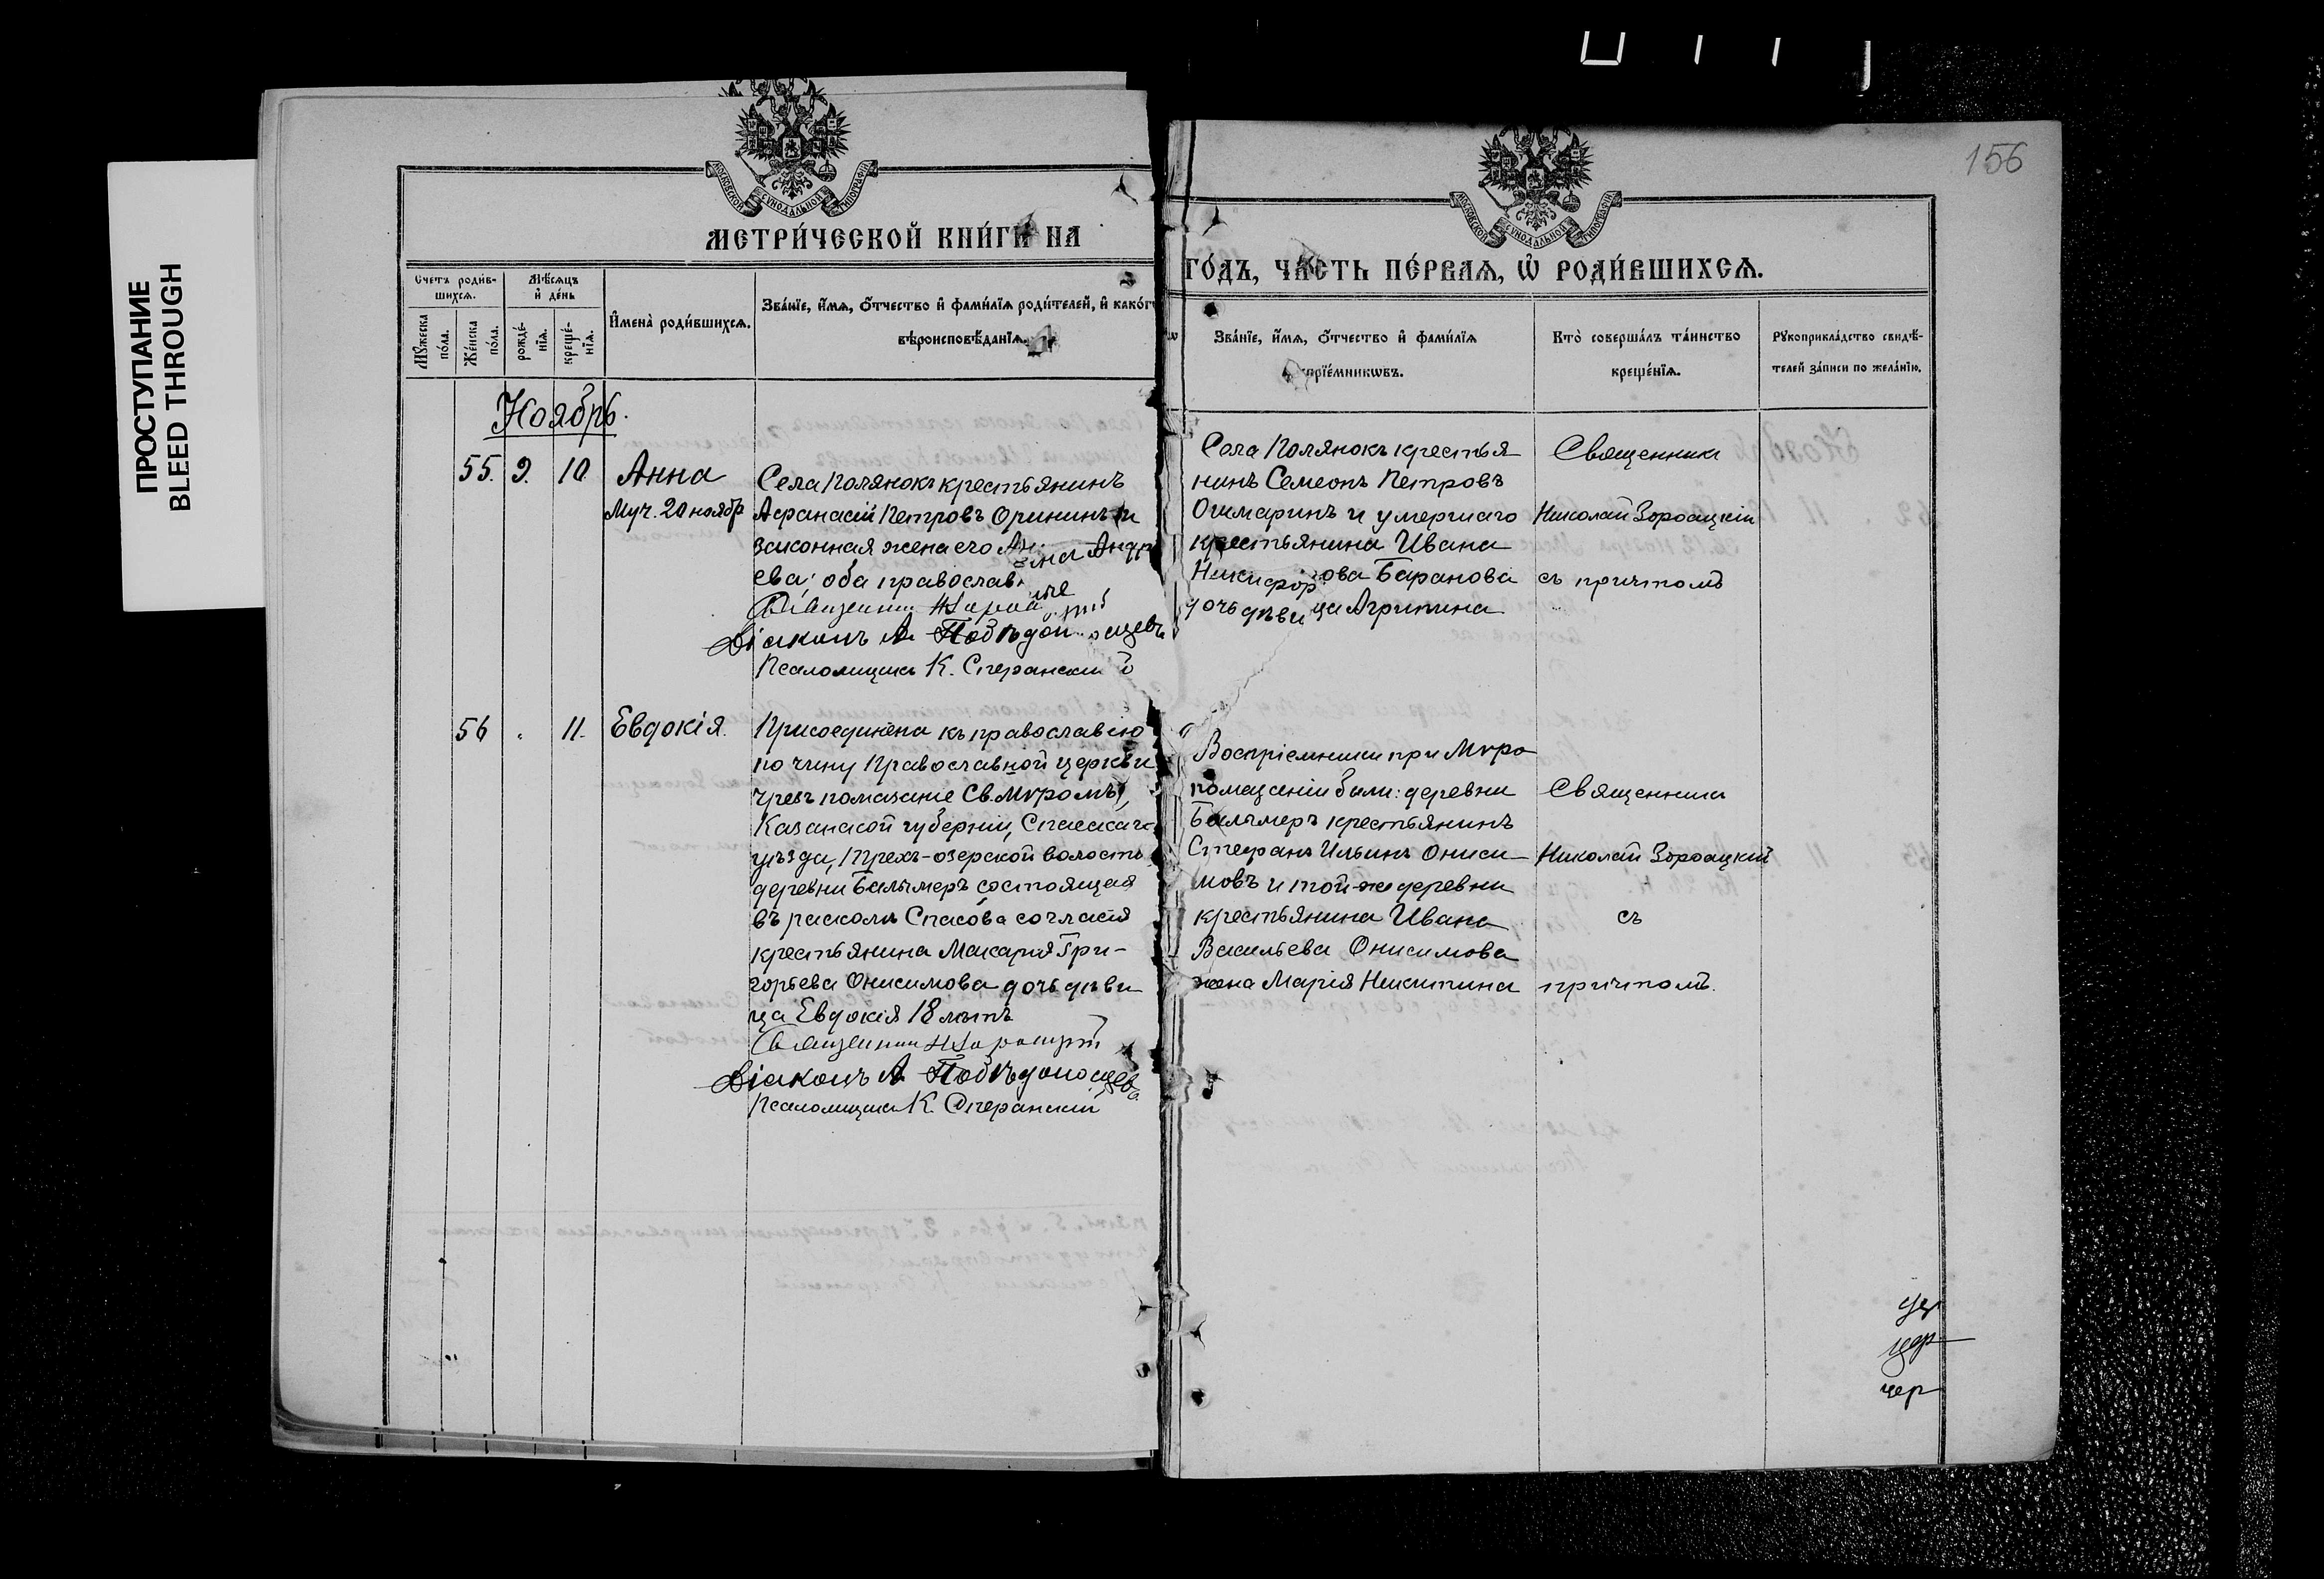 ПРОСТУПАНИЕ
BLEED THROUGH
156
МОСКОВСКОЙ СУНОДАЛЬНОЙ ТИПОГРАФІИ
МОСКОВСКОЙ СУНОДАЛЬНОЙ ТИПОГРАФІИ
МЕТРИ́ЧЕСКОЙ КНИ́ГИ НА
ГО́ДЪ, ЧА́СТЬ ПЕ́РВАѦ, Ѡ҆ РОДИ́ВШИХСѦ.
Счетъ роди́в-
шихсѧ.
Мѣ́сѧцъ
и҆ де́нь
Мꙋ́жеска
по́ла.
Же́нска
по́ла.
рожде́-
нїѧ.
креще́-
нїѧ.
И҆мена̀ роди́вшихсѧ.
Зва́нїе, и҆́мѧ, ѻ҆́тчество и҆ фами́лїѧ роди́телей, и҆ како́г
вѣроисповѣ́данїѧ.
Зва́нїе, и҆́мѧ, ѻ҆́тчество и҆ фами́лїѧ
прїе́мникѡвъ.
Кто̀ соверша́лъ та́инство
креще́нїѧ.
Рꙋкоприкла́дство свидѣ́-
телей за́писи по жела́нїю.
Ноябрь.
55. 9. 10 Анна
Муч. 20 ноябр
Села Полянокъ крестьянинъ
Афанасій Петровъ Орининъ и
законная жена его Ан на Андр
ева; оба православные
Священникъ
Діаконъ А. Побѣдоносцевъ
Псаломщикъ К. Сперанскій
Села Полянокъ крестья
нинъ Семеонъ Петровъ
и умершаго
крестьянина Ивана
Никифорова Баранова
дочь дѣвица Агрипина
Священникъ
Николай Зороацкій
съ причтомъ
56 11. Евдокія.
Присоединена къ православію
по чину Православной церкви
чрезъ помазаніе Св. Мѵромъ,
Казанской губерніи, Спасскаго
уѣзда, Трехъ-озерской волости
деревни Балымеръ состоящая
въ расколѣ Спасова согласія
крестьянина Макарія Гри-
горьева Онисимова дочь дѣви
ца Евдокія 18 лѣтъ
Священникъ
Діаконъ А. Побѣдоносцевъ
Псаломщикъ К. Сперанскій
Воспріемники при Мѵро
помазаніи были: деревни
Балымеръ крестьянинъ
Стефанъ Ильинъ Ониси-
мовъ и той-же деревни
крестьянина Ивана
Васильева Онисимова
жена Марія Никитина
Священникъ
Николай Зороацкій
съ
причтомъ.